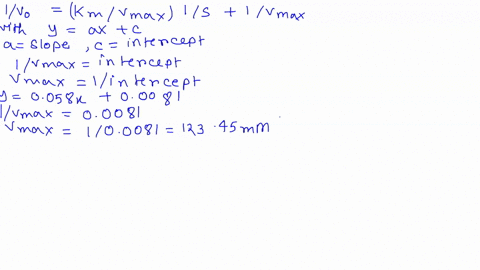 1/v₀ = (Km/vmax) 1/s + 1/vmax
with y = ax + c
a = slope, c = intercept
1/vmax = intercept
Vmax = 1/intercept
y = 0.058x + 0.0081
1/vmax = 0.0081
Vmax = 1/0.0081 = 123.45mM